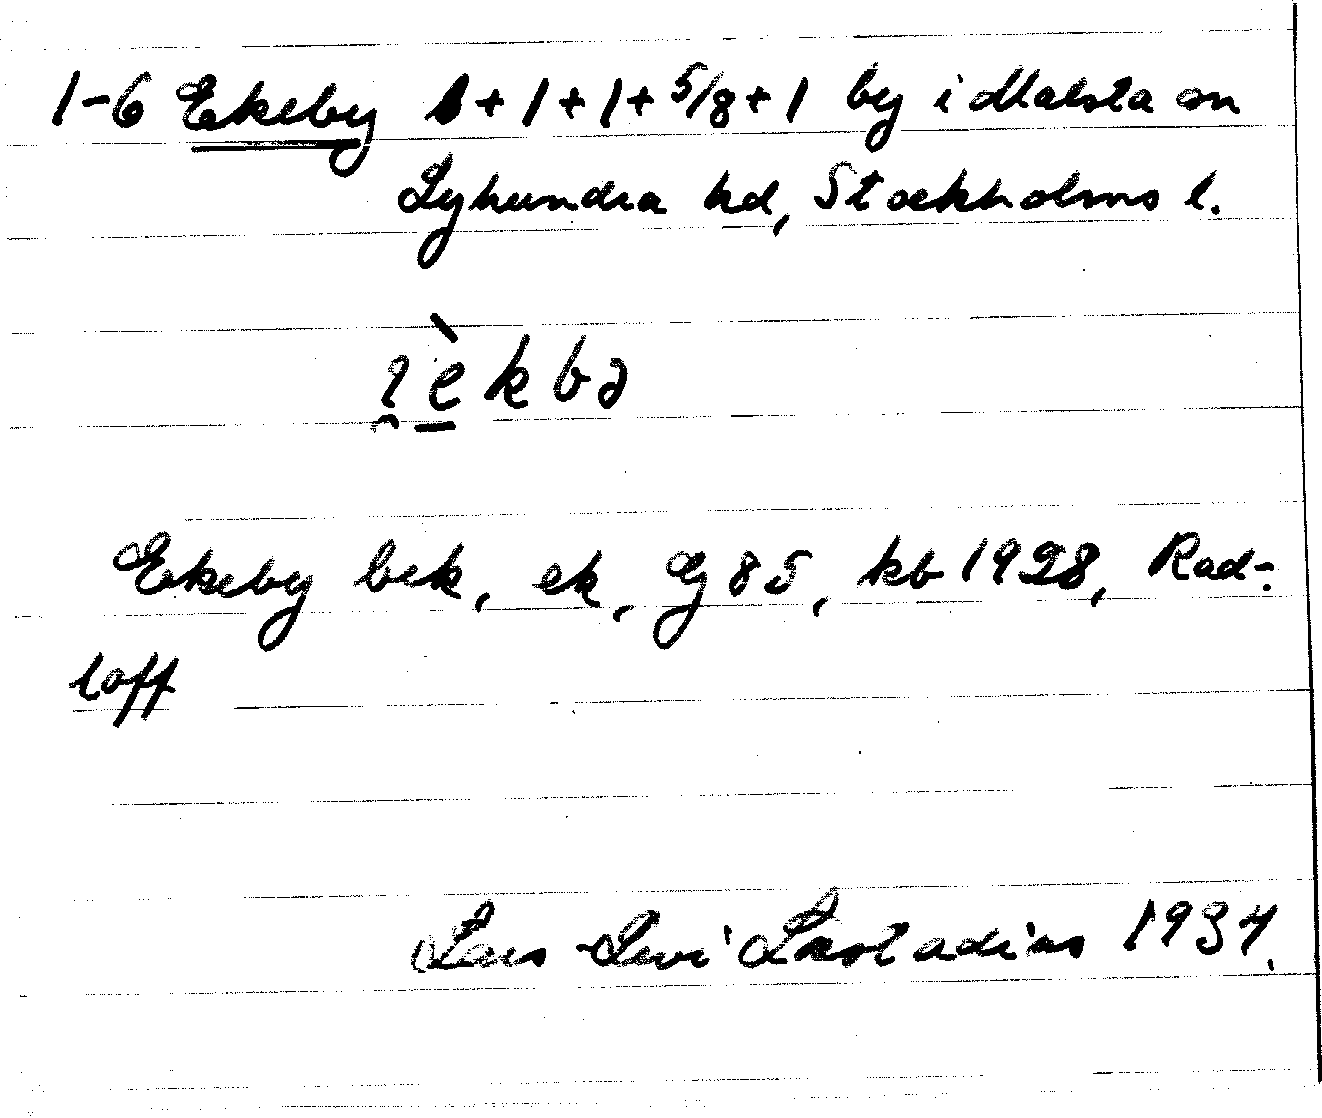 1-6 Ekeby 1+1+1+5/8+1 by i Malsta sn
Lyhundra hd, Stockholms l.
èkbə
Ekeby bek, ek, Gj 85, kb 1928, Rad-
loff
Lars Levi Læstadius 1934.